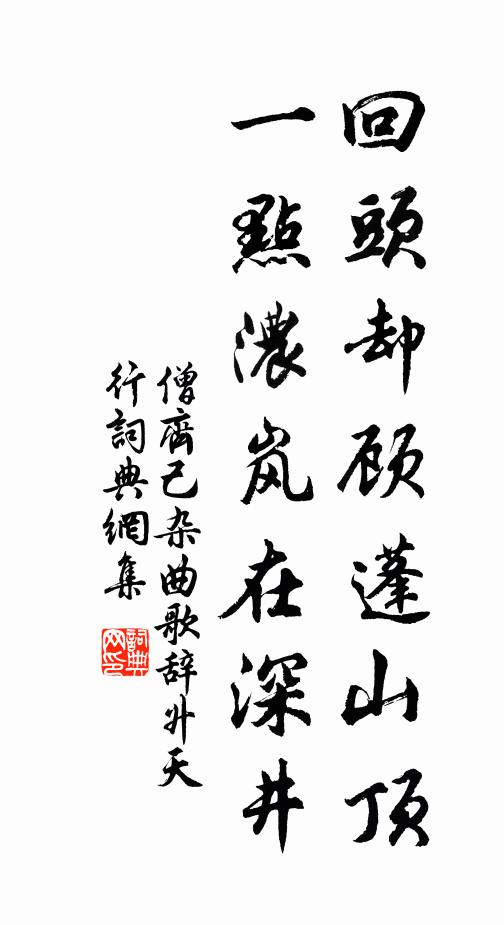 回頭却顾蓬山顶
一點濃岚在深井
僧齊己杂曲歌辞升天
行詞典網集
詞典
网印